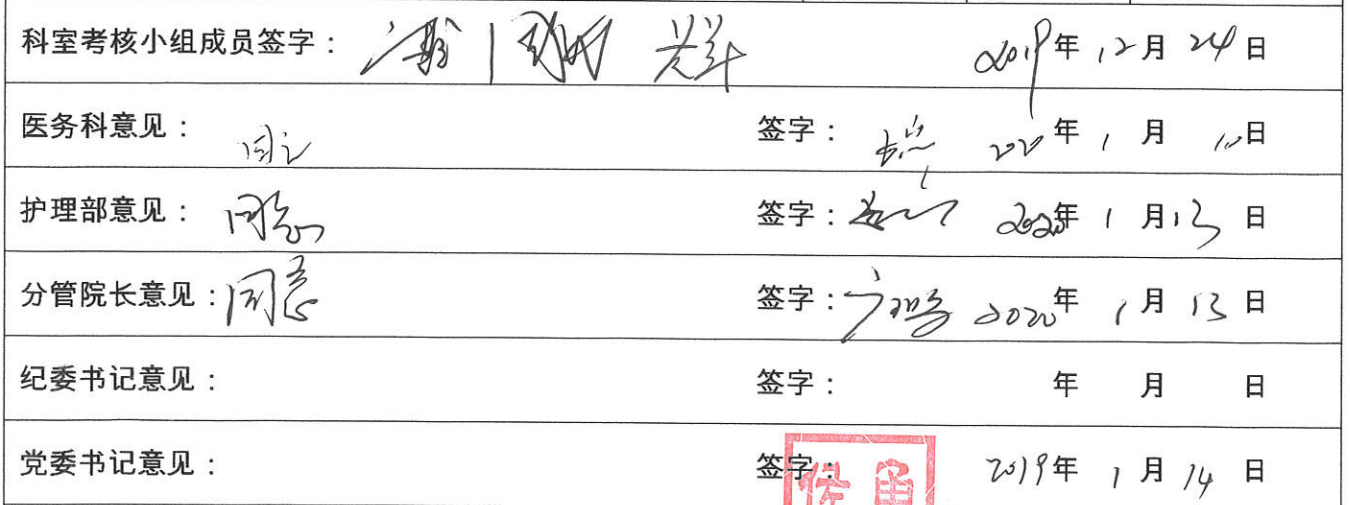 科室考核小组成员签字： 2019年 12月 24日
医务科意见： 同意 签字： 2020年 1 月 10日
护理部意见： 同意 签字： 2020年 1 月 13 日
分管院长意见：同意 签字： 2020年 1 月 13 日
纪委书记意见： 签字： 年 月 日
党委书记意见： 签字： 2019年 1 月 14 日